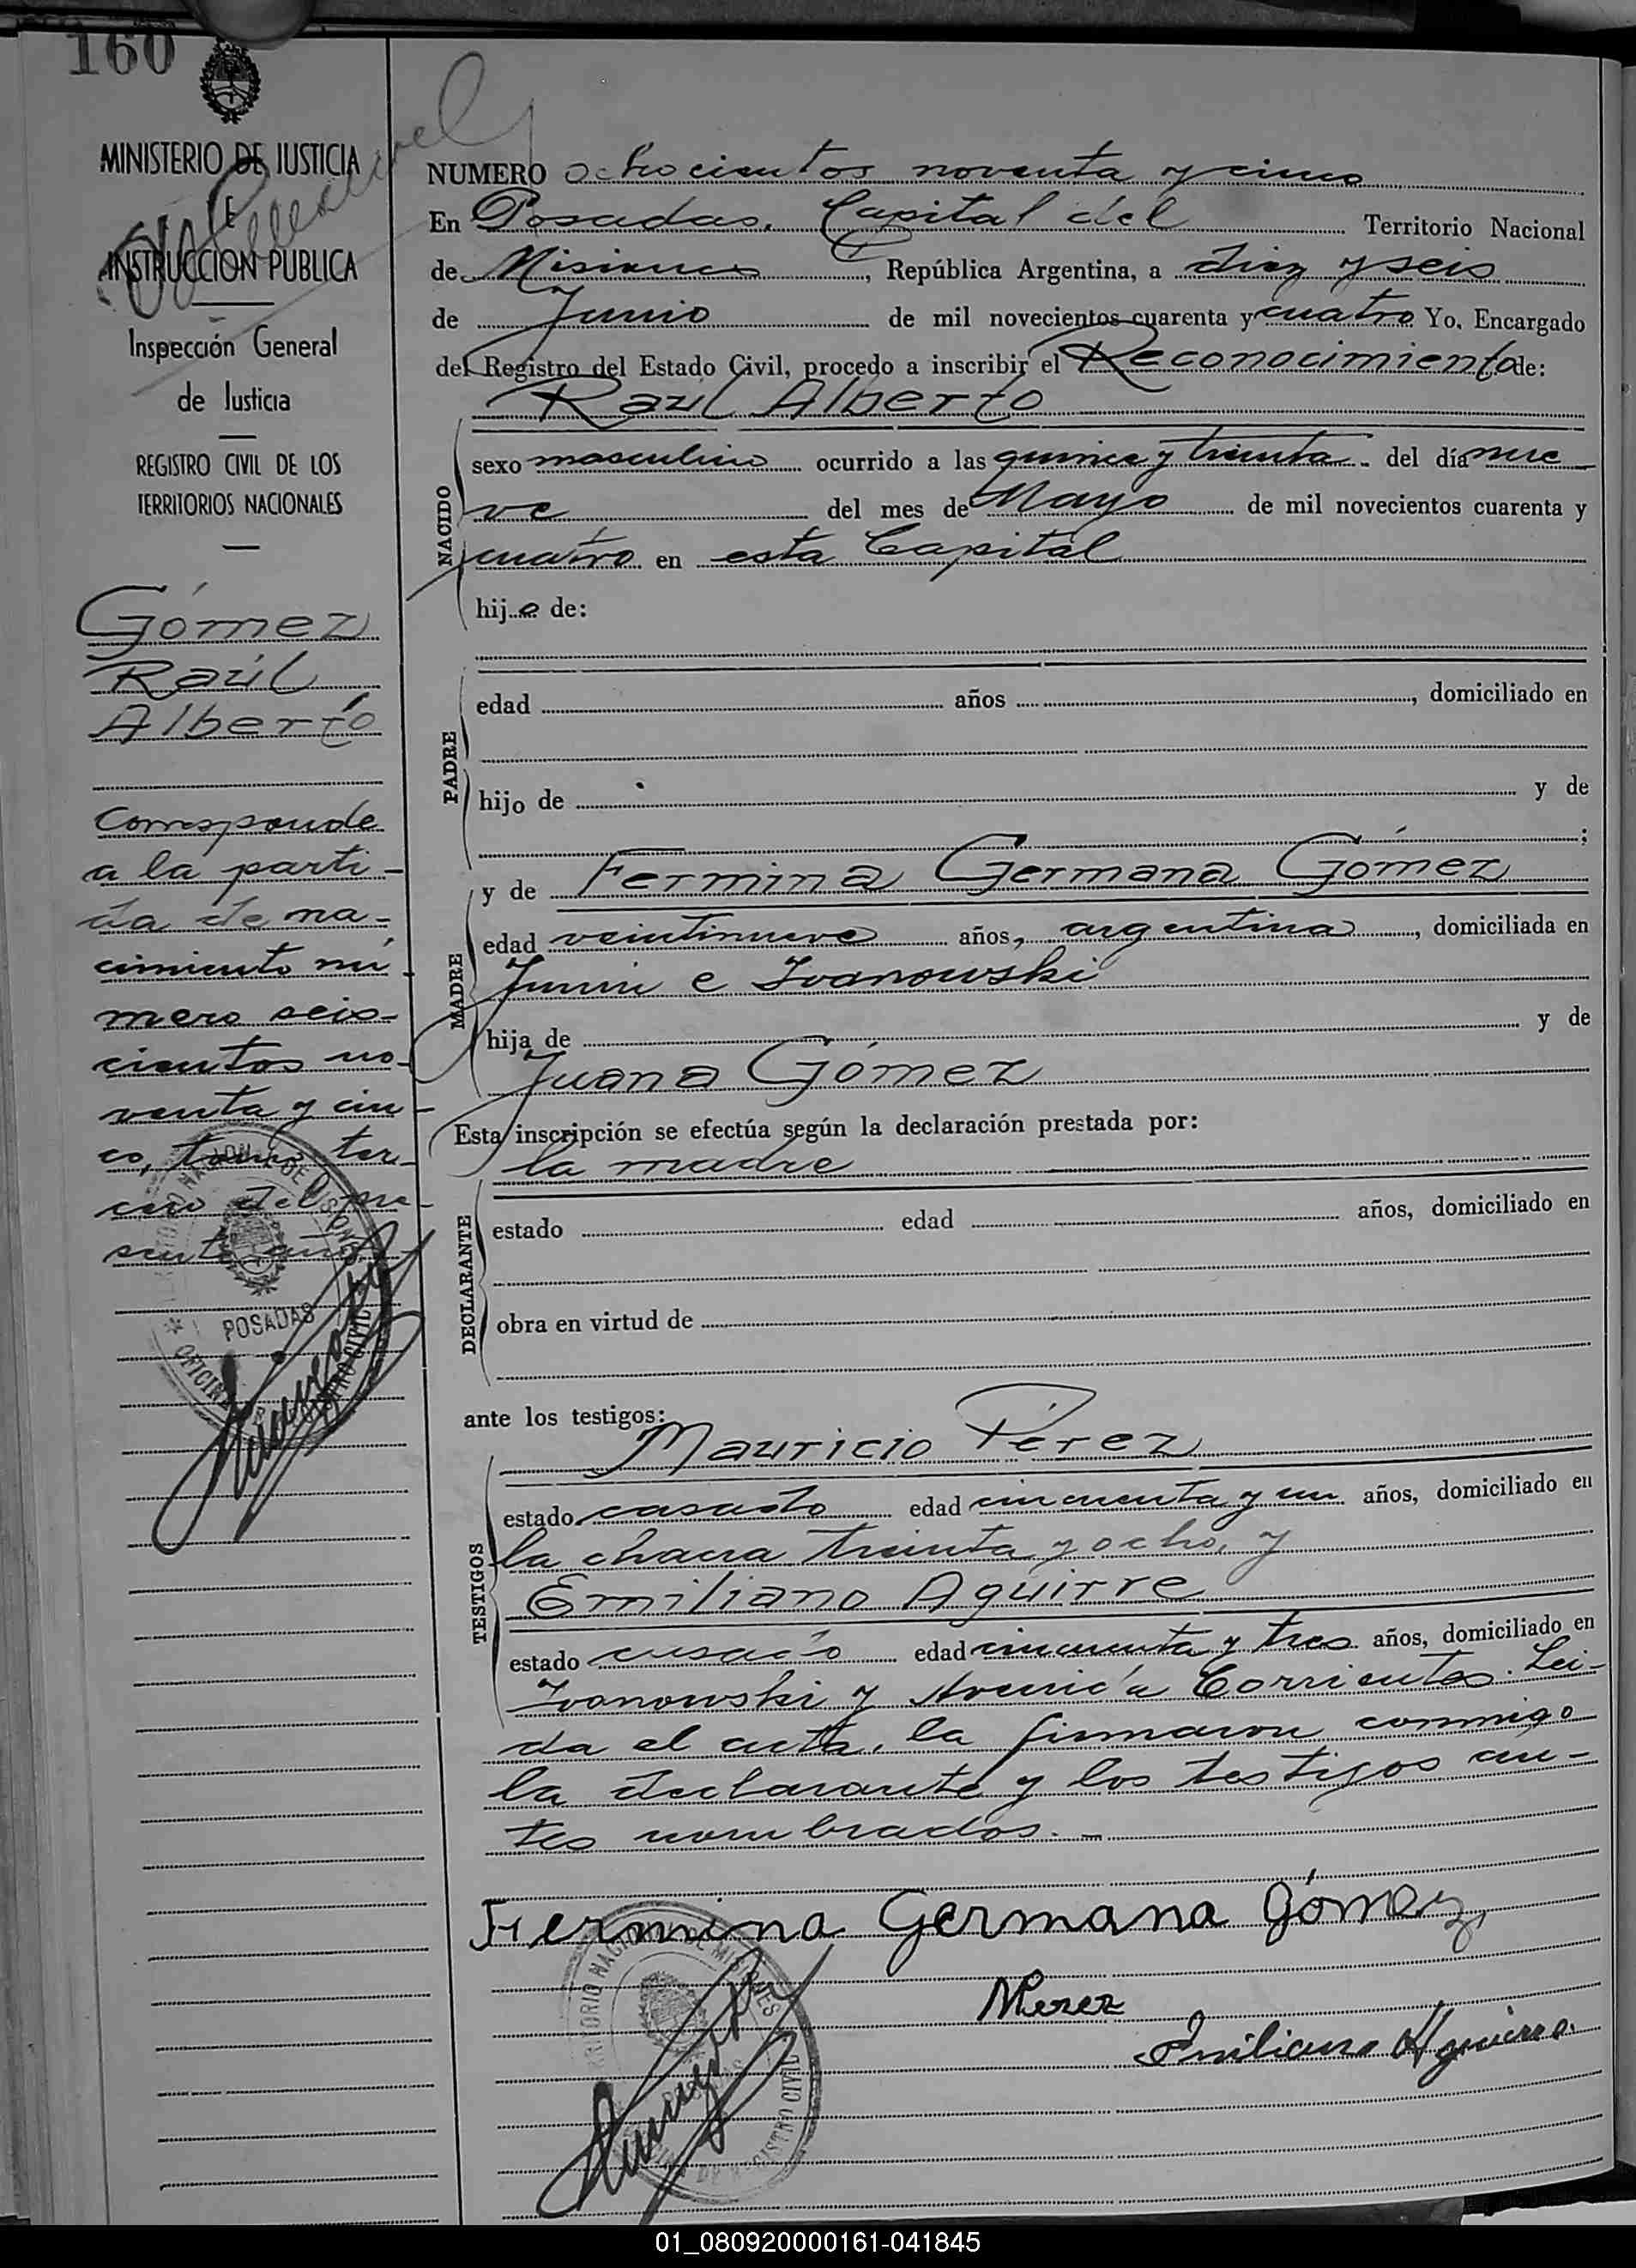 160
MINISTERIO DE JUSTICIA
E
INSTRUCCION PUBLICA
Inspección General
de Justicia
REGISTRO CIVIL DE LOS
TERRITORIOS NACIONALES
Gómez
Raúl
Alberto
Corresponde
a la parti-
da de na-
cimiento nú-
mero seis-
cientos no-
venta y cin-
co, tomo ter-
cero del pre-
sente año
POSADAS
NUMERO ochocientos noventa y cinco
En Posadas, Capital del Territorio Nacional
de Misiones, República Argentina, a diez y seis
de Junio de mil novecientos cuarenta y cuatro Yo, Encargado
del Registro del Estado Civil, procedo a inscribir el Reconocimiento de:
Raúl Alberto
NACIDO
sexo masculino ocurrido a las quince y treinta del día nue-
ve del mes de Mayo de mil novecientos cuarenta y
cuatro en esta Capital
hijo de:
PADRE
edad años , domiciliado en
hijo de y de
;
MADRE
y de Fermina Germana Gómez
edad veintinueve años, argentina, domiciliada en
Junin e Ivanowski
hija de y de
Juana Gómez
Esta inscripción se efectúa según la declaración prestada por:
la madre
DECLARANTE
estado edad años, domiciliado en
obra en virtud de
ante los testigos:
Mauricio Pérez
TESTIGOS
estado casado edad cincuenta y un años, domiciliado en
la chacra treinta y ocho, y
Emiliano Aguirre
estado casado edad cincuenta y tres años, domiciliado en
Ivanowski y Avenida Corrientes. Lei-
da el acta, la firmaron conmigo
la declarante y los testigos an-
tes nombrados.-
Fermina Germana Gómez
MPerez
Emiliano Aguirre.
TERRITORIO NACIONAL DE MISIONES
OFICINA DE REGISTRO CIVIL
01_080920000161-041845